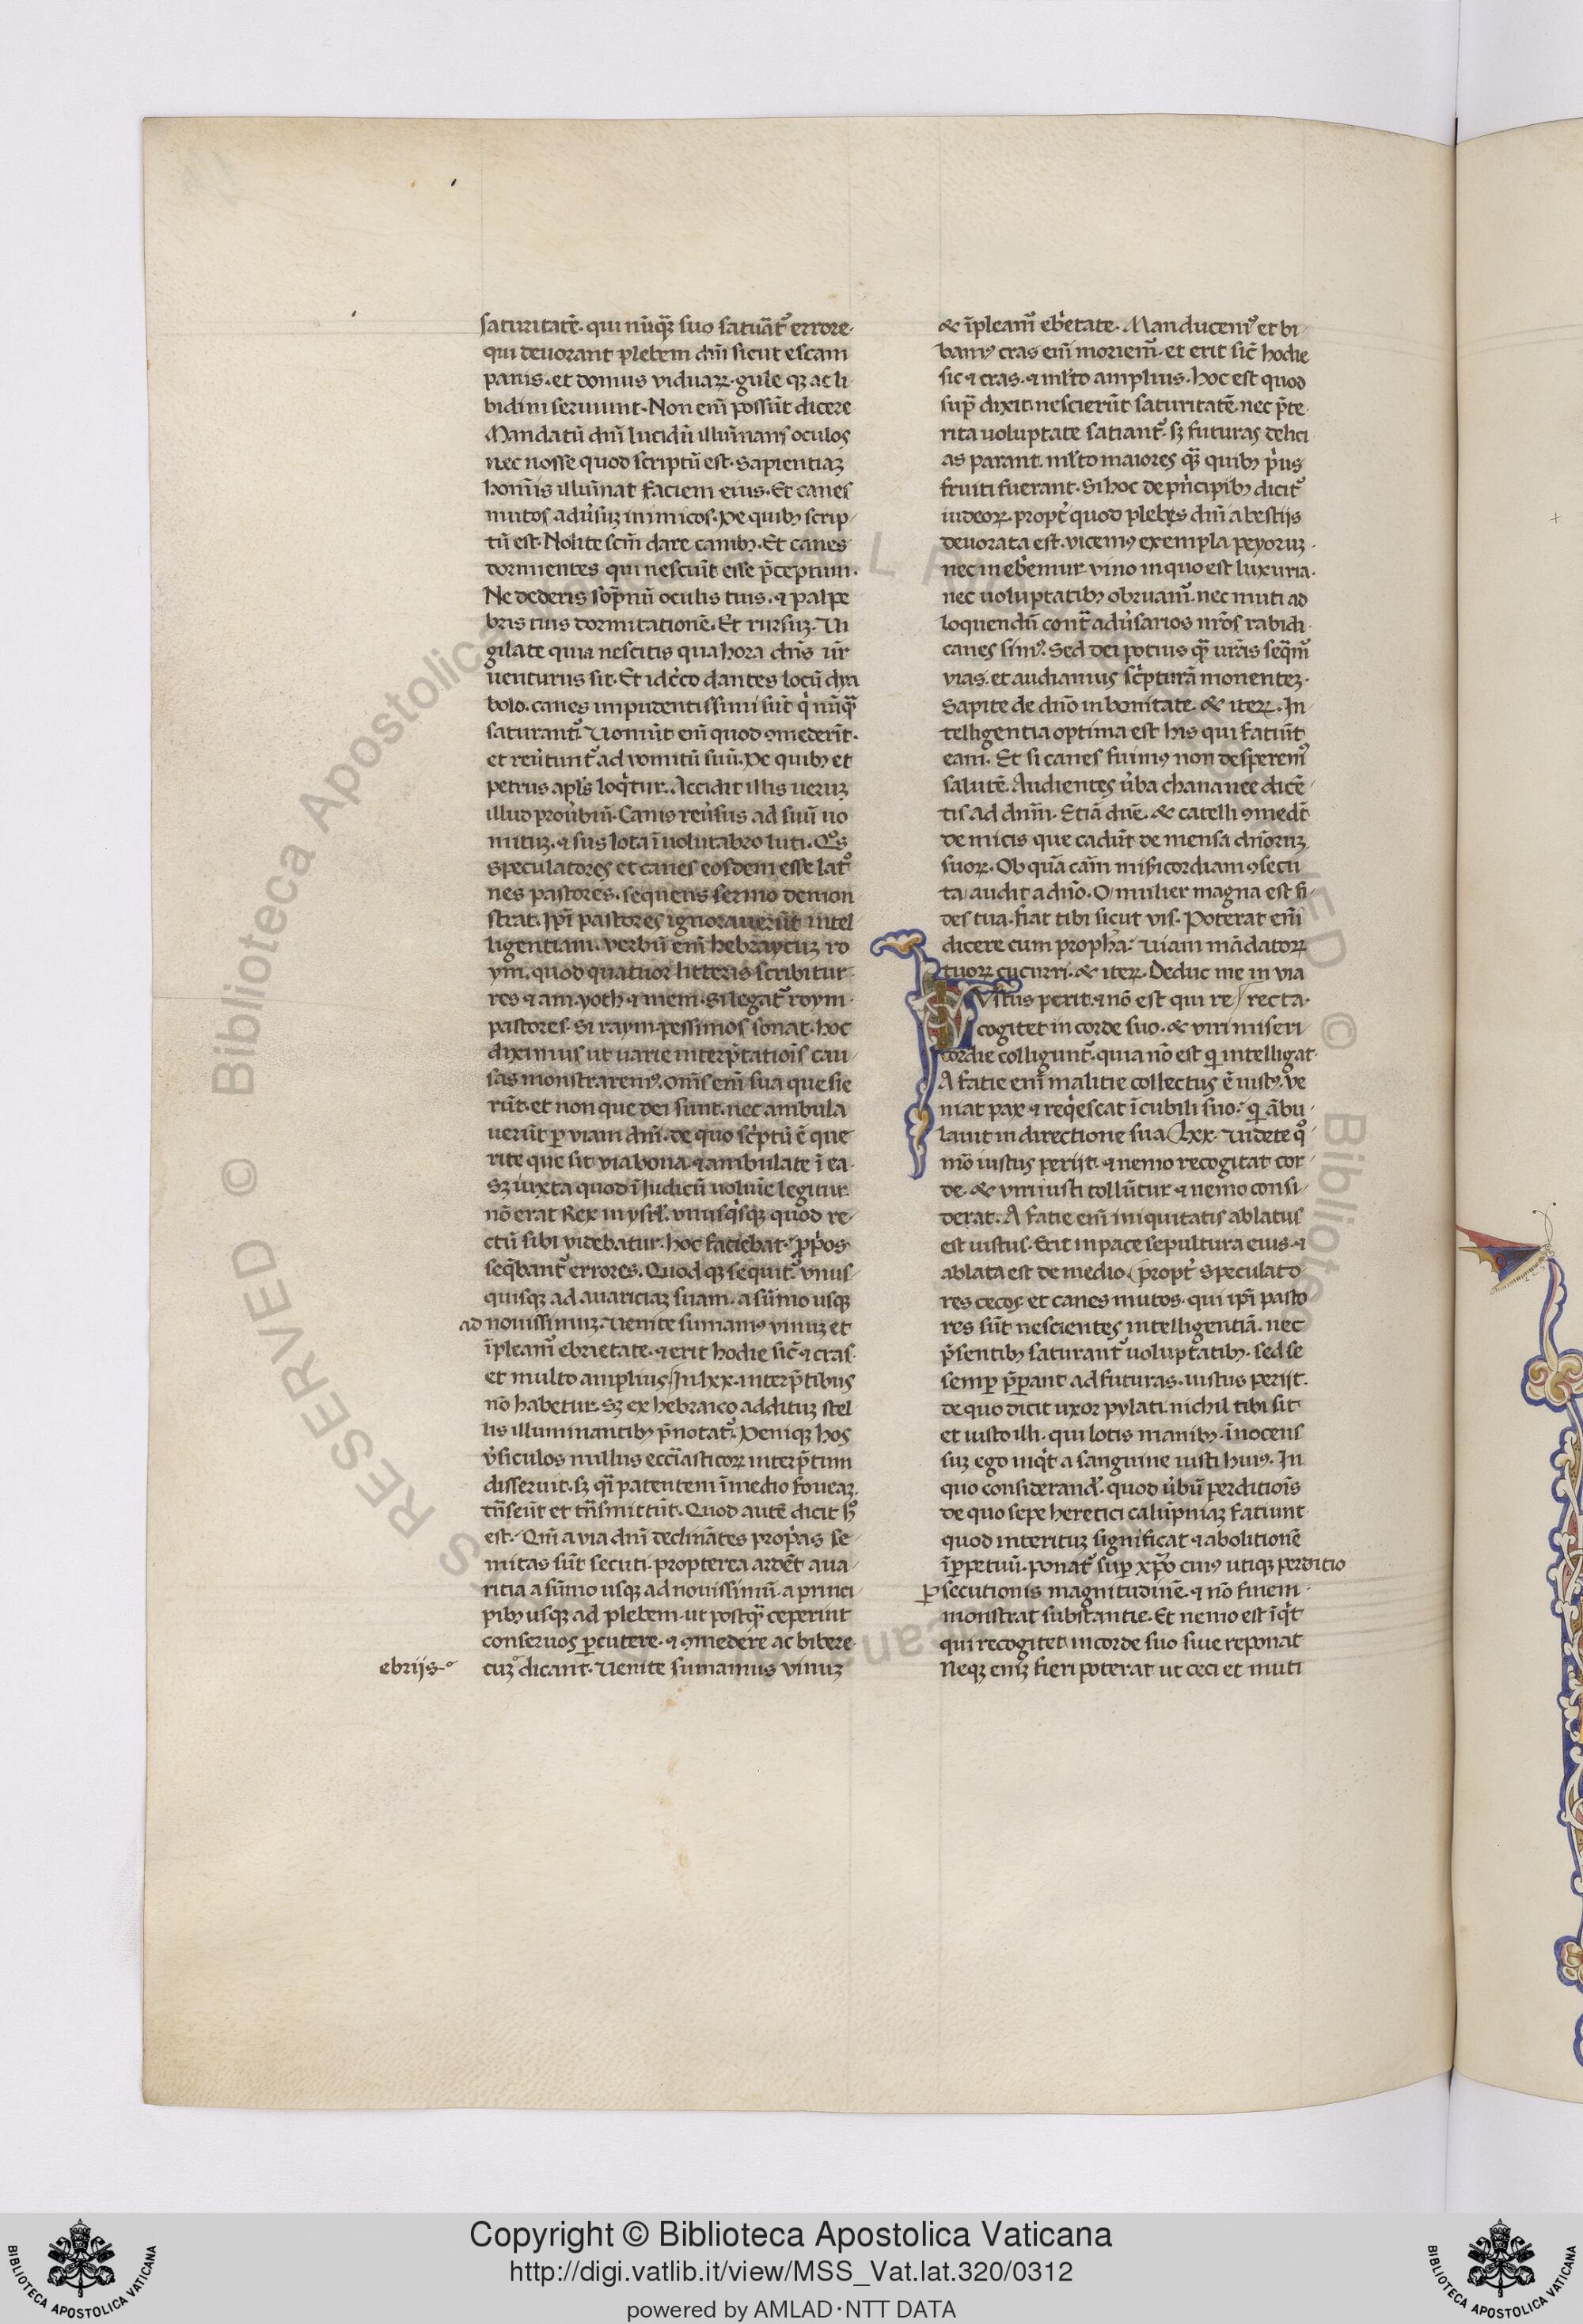 saturitatē. qui nūqȝ suo satuāt᷒ errore.
qui deuorant plebem dnī sicut escam
panis. et domus viduaꝝ. gule qȝ ac li
bidini seruiunt. Non enī possūt dicere
Mandatū dnī lucidū illuīnans oculos
nec nosse quod scriptū est. Sapientiaȝ
homīs illuīnat faciem eius. Et canes
mutos adūsuȝ inimicos. De quibȝ scrip
tū est. Nolite scm̄ dare canibȝ. Et canes
dormientes qui nesciūt esse p̄ceptum.
Ne dederis sōpnū oculis tuis. ⁊ palpe
bris tuis dormitationē. Et rursuȝ. Vi
gilate quia nescitis qua hora dns̄ ur̄
uenturus sit. Et idc̄co dantes locū dya
bolo. canes imprudentissimi sūt q̇ nūqȝ
saturant᷒. Vomūt enī quod ꝯmederīt.
et reūtunt᷒ ad vomitū suū. De quibȝ et
petrus apl̄s loq̇tur. Accidit illis ueruȝ
illud proūbiū. Canis reūsus ad suū uo
mituȝ. ⁊ sus lota ī uolutabro luti. Qᵒs
speculatores et canes eosdem esse lat᷒
nes pastores. sequens sermo demon
strat. Ip̄i pastores ignorauerūt intel
ligentiam. verbū enī hebraycuȝ ro
ym. quod quatuor litteris scribitur
res ⁊ am. yoth ⁊ mem. Si legat᷒ roym.
pastores. Si raym. pessimos sonat. hoc
diximus ut uarie interp̄tatiōis cau
sas monstraremꝰ. om̄s enī sua quesie
rūt. et non que dei sunt. nec ambula
uerūt ꝑ viam dnī. de quo sc̄ptū ē que
rite que sit via bona. ⁊ ambulate ī ea.
Sȝ iuxta quod ī iudicū uoluīe legitur.
nō erat Rex in ysrl̄. unusq̇sqȝ quod re
ctū sibi videbatur. hoc faciebat. ꝓp̄os
seq̄bant᷒ errores. Quod qȝ sequit᷒. vnus
quisqȝ ad auariciaȝ suam. a sūmo usqȝ
ad nouissimuȝ. Venite sumamꝰ vinuȝ et
īpleam᷒ ebrietate. ⁊ erit hodie sic̄ ⁊ cras.
et multo amplius. In lxx. interp̄tibus
nō habetur. Sȝ ex hebraico additȝ stel
lis illuminantibȝ p̄notat᷒. Deniqȝ hos
ūsiculos nullus eccl̄iasticoꝝ interp̄tum
disseruit. sȝ q̄i patentem ī medio foueaȝ.
trn̄seūt et trn̄smittūt. Quod autē dicit hᵒ
est. Qm̄ a via dnī declināntes prop̄as se
mitas sūt secuti. propterea ardēt aua
ritia a sūmo usqȝ ad nouissimū. a princi
pibȝ usqȝ ad plebem. ut postqȝ ceperint
conseruos ꝑcutere. ⁊ ꝯmedere ac bibere
ebrijs.
cuȝ dicant. Venite sumamus vinuȝ
& īpleam᷒ ebȓetate. Manducem᷒ et bi
bamꝰ cras enī moriem᷒. et erit sic̄ hodie
sic ⁊ cras. ⁊ ml̄to amplius. hoc est quod
supᷓ dixit. nescierūt saturitatē. nec p̄te
rita uoluptate satiant᷒. sȝ futuras delici
as parant. ml̄to maiores qȝ quibȝ p̄us
fruiti fuerant. Si hoc de pn̄cipibȝ dicit᷒
iudeoꝝ. propt̄ quod plebes dnī a bestijs
deuorata est. vicemꝰ exempla peyoruȝ.
nec inebr̄emur vino in quo est luxuria.
nec uoluptatibȝ obruam᷒. nec muti ad
loquendū cont̄ adūsarios nrōs rabidi
canes simꝰ. Sed dei potius qȝ urās seq̄m᷒
vias. et audiamus sc̄pturā monenteȝ.
Sapite de dnō in bonitate. & iteꝝ. In
telligentia optima est his qui fatiūt
eam. Et si canes fuimꝰ non desperem᷒
salutē. Audientes ūba chananee dicē
tis ad dnm̄. Etiā dnē. & catelli ꝯmedūt
de micis que cadūt de mensa dnōruȝ
suoꝝ. Ob quā cām mis̄icordiam ꝯsecu
ta audit a dnō. O mulier magna est fi
des tua. fiat tibi sicut vis. Poterat enī
dicere cum proph̄a. Viam mādatoꝝ
tuoꝝ cucurri. & iteꝝ. Deduc me in via
Iustus perit. ⁊ nō est qui re recta.
cogitet in corde suo. & viri miseri
cordie colligunt᷒. quia nō est q̄ intelligat.
A fatie enī malitie collectus ē iustꝰ. ve
niat pax ⁊ req̇escat ī cubili suo. q̄ ābu
lauit in directione sua. lxx. Videte qᵒ
mō iustus perijt. ⁊ nemo recogitat cor
de. & viri iusti tollūtur ⁊ nemo consi
derat. A fatie enī iniquitatis ablatus
est iustus. Erit in pace sepultura eius. ⁊
ablata est de medio. propt̄ speculato
res cecos et canes mutos. qui ip̄i pasto
res sūt nescientes intelligentiā. nec
p̄sentibȝ saturant᷒ uoluptatibȝ. sed se
semꝑ p̄ꝑant ad futuras. iustus perijt.
de quo dicit uxor pylati. nichil tibi sit
et iusto illi. qui lotis manibȝ. īnocens
suȝ ego inq̇t a sanguine iusti huiꝰ. In
quo considerand̄. quod ūbū perditiōis
de quo sepe heretici calūpniaȝ fatiunt
quod interituȝ significat ⁊ abolitionē
īꝑpetuū. ponat᷒ suꝑ xp̄o cuiꝰ utiqȝ perditio
ꝑsecutionis magnitudinē. ⁊ nō finem
monstrat substantie. Et nemo est īq̇t
qui recogitet in corde suo siue reponat
Neqȝ eniȝ fieri poterat ut ceci et muti
Copyright © Biblioteca Apostolica Vaticana
http://digi.vatlib.it/view/MSS_Vat.lat.320/0312
powered by AMLAD·NTT DATA
BIBLIOTECA APOSTOLICA VATICANA
BIBLIOTECA APOSTOLICA VATICANA